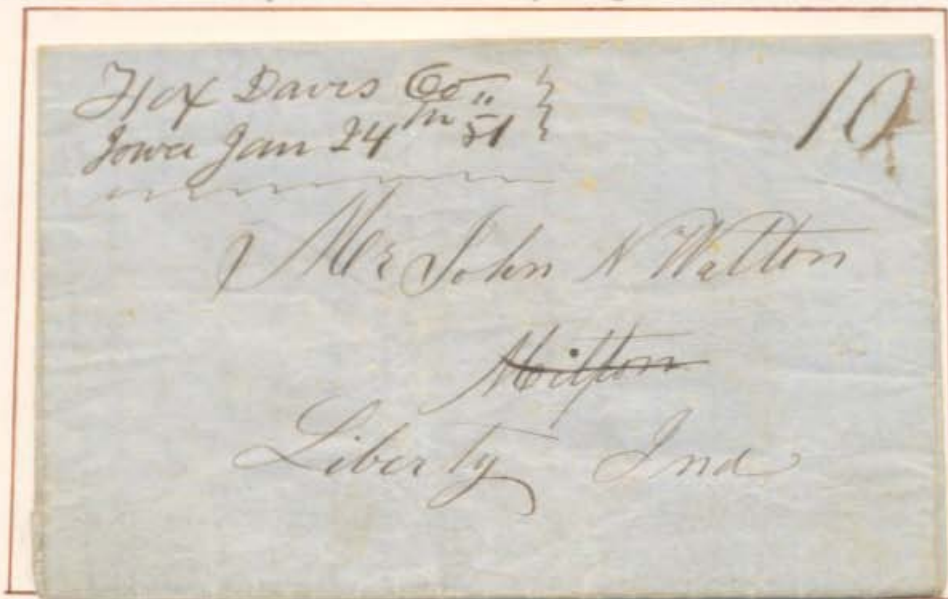 Fox Davis Co.,,
Iowa Jan 24th 51
10
Mr John N Watton
Milton
Liberty Ind